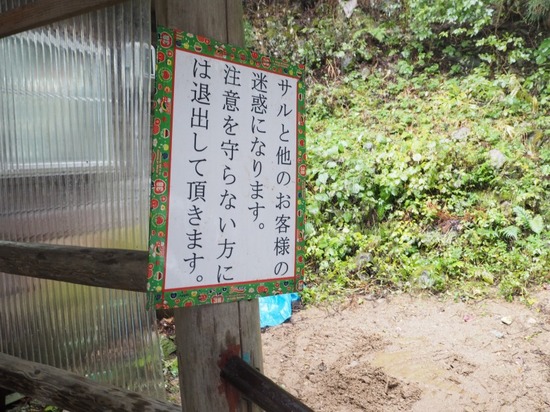 サルと他のお客様の
迷惑になります。
注意を守らない方に
は退出して頂きます。